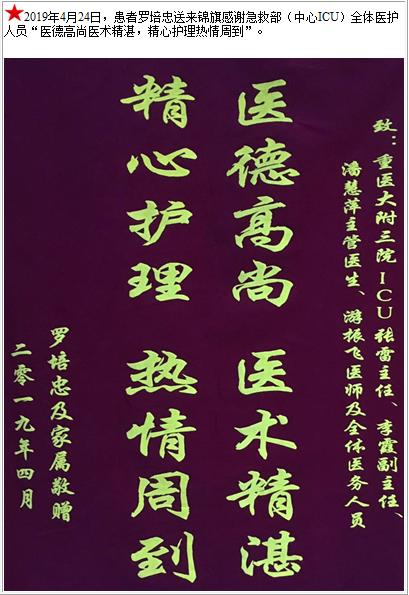 ★2019年4月24日，患者罗培忠送来锦旗感谢急救部（中心ICU）全体医护
人员“医德高尚医术精湛，精心护理热情周到”。
致：重医大附三院ICU张雷主任、李霞副主任、
潘慧萍主管医生、游振飞医师及全体医务人员
医德高尚 医术精湛
精心护理 热情周到
罗培忠及家属敬赠
二零一九年四月